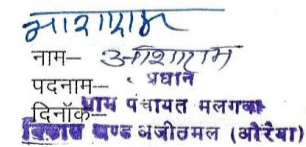 आशाराम
नाम– आशाराम
पदनाम– प्रधान
दिनाँक–
ग्राम पंचायत मलगवा
विकास खण्ड अजीतमल (औरैया)